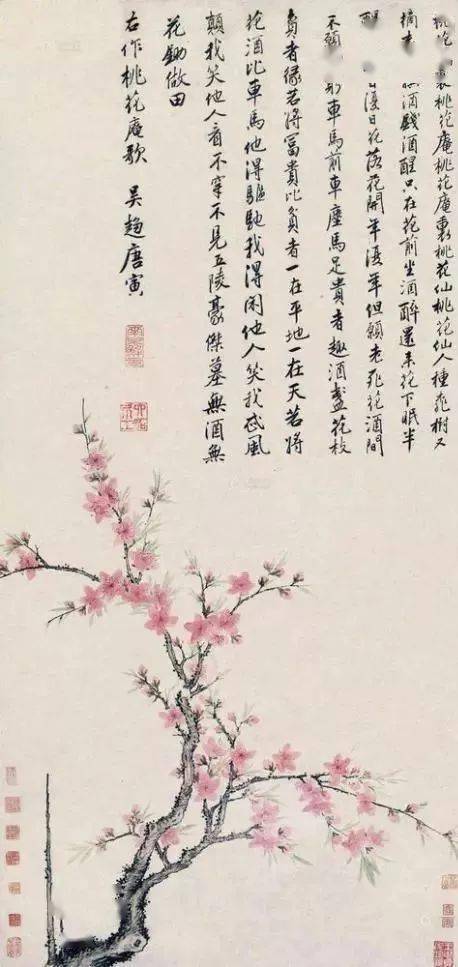 桃花裏桃花庵桃花庵裏桃花仙桃花仙人種桃樹又
摘酒錢酒醒只在花前坐酒醉還来花下眠半
復日花落花開年復年但願老死花酒間
不願車馬前車塵馬足貴者趣酒盞花枝
貧者緣若將富貴比貧者一在平地一在天若將
花酒比車馬他得驅馳我得閑他人笑我忒風
顛我笑他人看不穿不見五陵豪傑墓無酒無
花鋤做田
右作桃花庵歌 吳趨唐寅